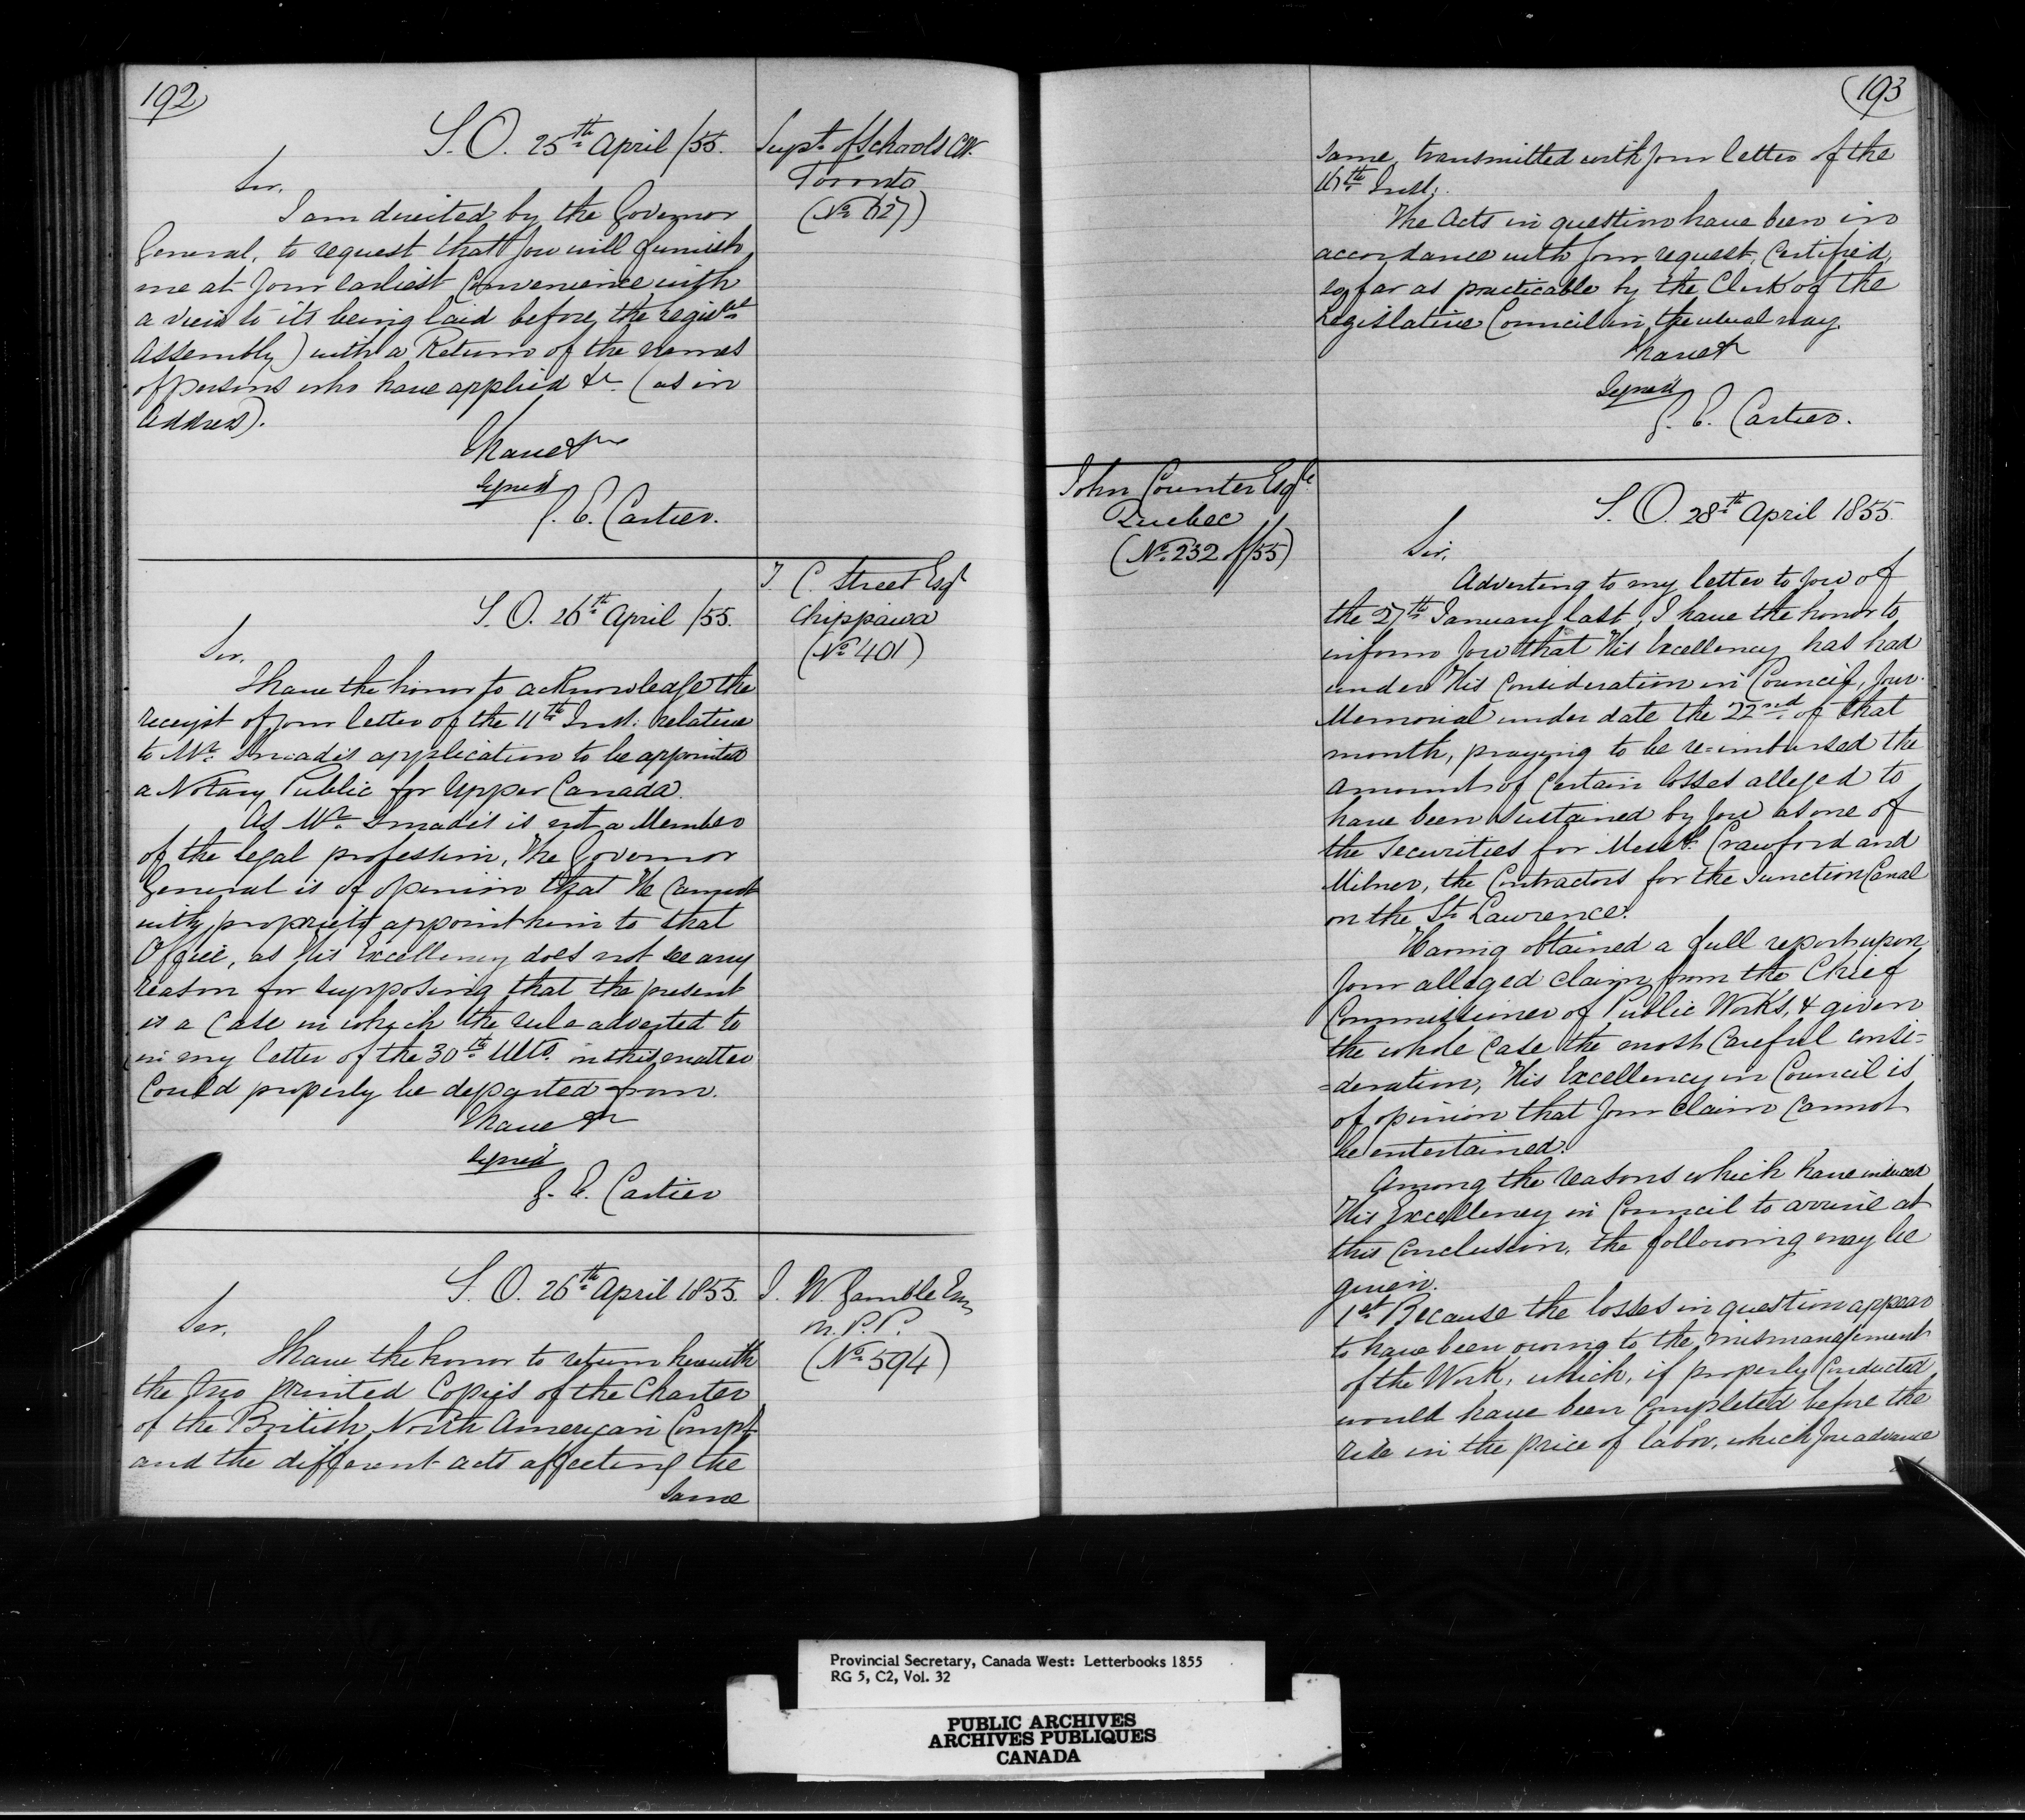 192
S. O. 25th April /55.
Supt. of Schools C.W.
Toronto
Sir,
I am directed by the Governor
General, to request that you will furnish
me at your earliest convenience with
a view to its being laid before the Legisve
Assembly) with a Return of the names
of persons who have applied &c (as in
Address).
I have &c
Signed
G. E. Cartier.
S. O. 26th April /55.
T. C. Street Esqr
Chippawa
(No 401)
Sir,
I have the honor to acknowledge the
receipt of your letter of the 11th Inst: relative
to Mr. application to be appointed
a Notary Public for Upper Canada.
As Mr. is not a Member
of the legal profession, the Governor
General is of opinion that He cannot
with propriety appoint him to that
Office, as His Excellency does not see any
reason for supposing that the present
is a case in which the rule adverted to
in my letter of the 30th Ulto. in this matter
could properly be departed from.
I have &c
Signed
G. E. Cartier
S. O. 26th April 1855.
J. W. Gamble Esq
M. P. P.
(No 594)
Sir,
I have the honor to return herewith
the two printed Copies of the Charter
of the British North American Compy
and the different acts affecting the
same
193
same, transmitted with your letter of the
16th Inst:
The Acts in question have been in
accordance with your request, Certified,
so far as practicable by the Clerk of the
Legislative Council in the usual way.
I have &c
Signed
G. E. Cartier.
John Counter Esqre
Quebec
(No. 232 of/55)
S. O. 28th April 1855.
Sir,
Adverting to my letter to you of
the 27th January last, I have the honor to
inform you that His Excellency has had
under His Consideration in Council, your
Memorial under date the 22nd of that
month, praying to be re=imbursed the
amount of certain losses alleged to
have been sustained by you as one of
the Securities for Messrs. Crawford and
Milner, the Contractors for the Junction Canal
on the St. Lawrence.
Having obtained a full report upon
your alleged claim from the Chief
Commissioner of Public Works, & given
the whole case the most careful consi=
=deration, His Excellency in Council is
of opinion that your claim cannot
be entertained.
Among the reasons which have induced
His Excellency in Council to arrive at
this conclusion, the following may be
given.
1st Because the losses in question appear
to have been owing to the mismanagement
of the Work, which, if properly conducted
would have been completed before the
rise in the price of labor, which you advance
Provincial Secretary, Canada West: Letterbooks 1855
RG 5, C2, Vol. 32
PUBLIC ARCHIVES
ARCHIVES PUBLIQUES
CANADA